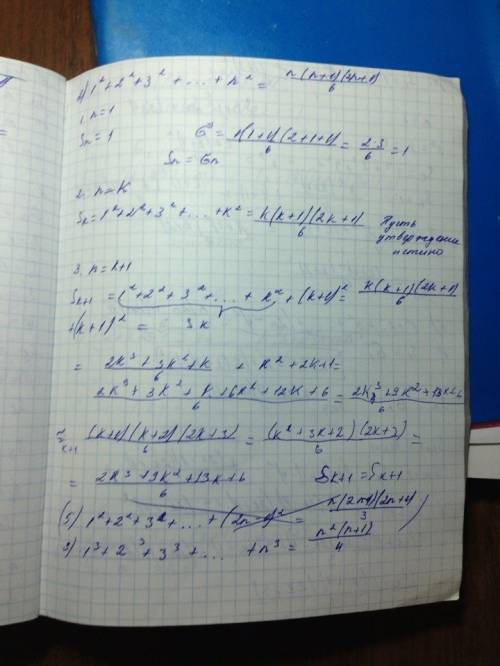 2) 1² + 2² + 3² + ... + n² = n(n+1)(2n+1)/6
1. n=1
Sn = 1 σ¹ = 1(1+1)(2+1+1)/6 = 2·3/6 = 1
Sn = σn
2. n=K
Sk = 1² + 2² + 3² + ... + K² = k(k+1)(2k+1)/6 Пусть утверждение истино
3. n=k+1
Sk+1 = 1² + 2² + 3² + ... + k² + (k+1)² = k(k+1)(2k+1)/6
+(k+1)² = Sk
= 2k³+3k²+k/6 + k²+2k+1 =
2k³+3k²+k+6k²+12k+6/6 = 2k³+9k²+13k+6/6
σk+1 (k+1)(k+2)(2k+3)/6 = (k²+3k+2)(2k+3)/6 =
= 2k³+9k²+13k+6/6 Sk+1 = Sk+1
(5) 1² + 2² + 3² + ... + (2n-1)² = n(2n+1)(2n+1)/3 )
3) 1³ + 2³ + 3³ + ... + n³ = n²(n+1)/4